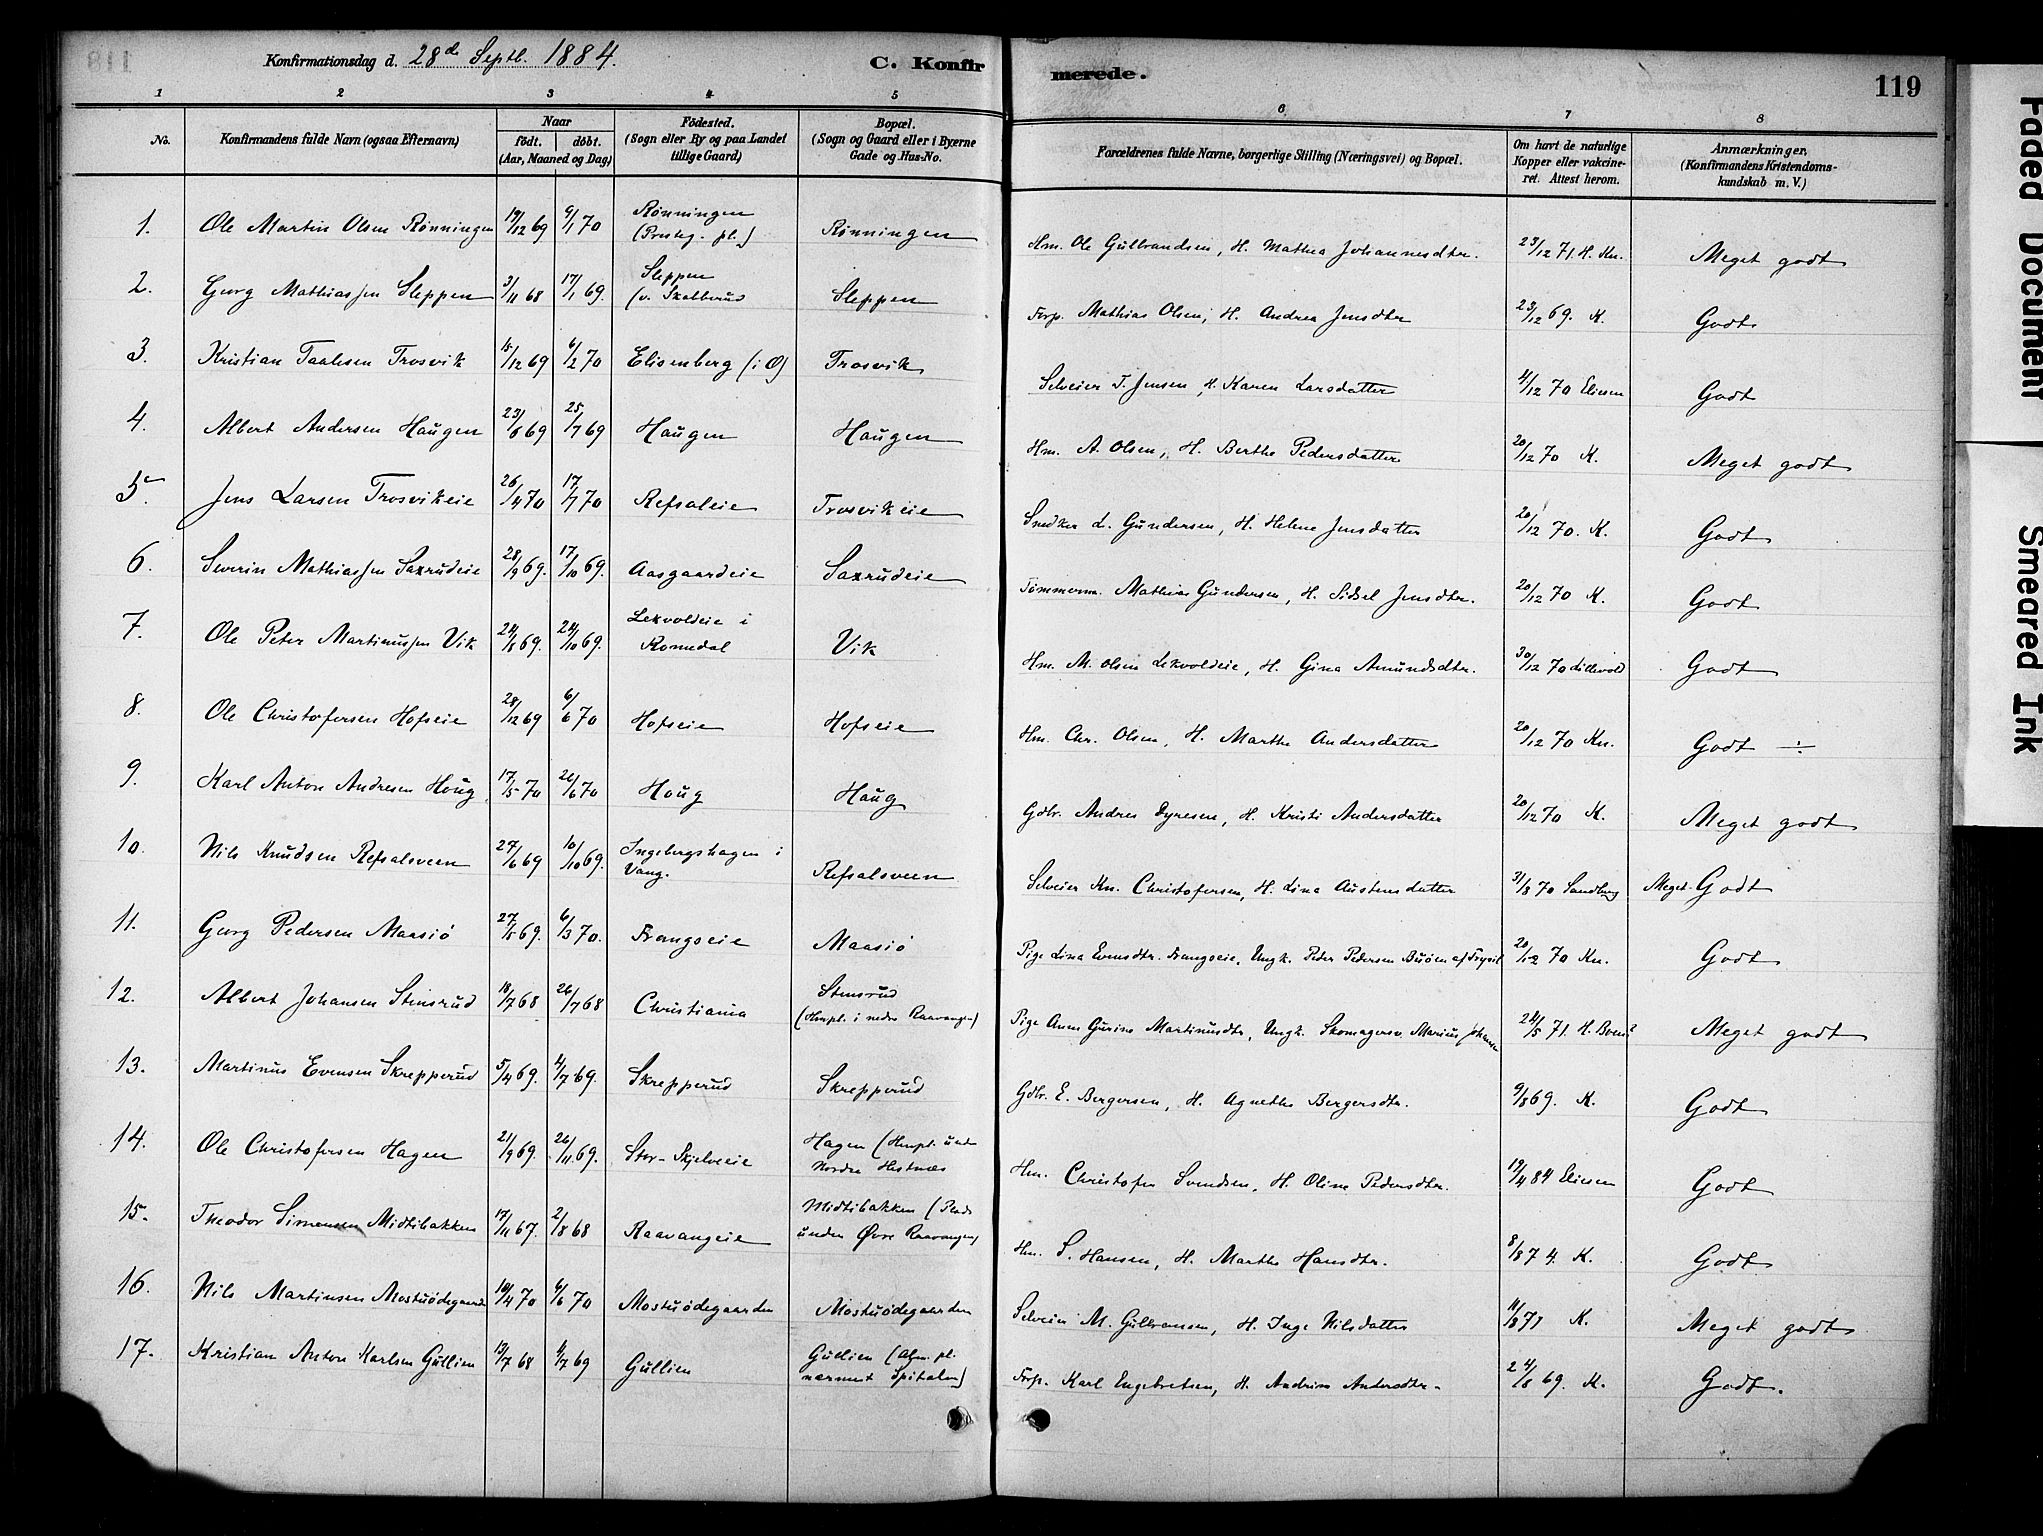 Konfirmationsdag d. 28de Septb. 1884.
C. Konfirmerede.
119
1 2 3 4 5 6 7 8
No. Konfirmandens fulde Navn (ogsaa Efternavn) Naar født. døbt. (Aar, Maaned og Dag) Fødested. (Sogn eller By og paa Landet tillige Gaard) Bopæl. (Sogn og Gaard eller i Byerne Gade og Hus-No. Forældrenes fulde Navne, borgerlige Stilling (Næringsvei) og Bopæl. Om havt de naturlige Kopper eller vakcineret. Attest herom. Anmærkninger. (Konfirmandens Kristendomskundskab m. V.)
1. Ole Martin Olsen Rønningen 19/12 69 9/1 70 Rønningen (Presteg. pl.) Rønningen Hm. Ole Gulbrandsen, H. Mathea Johannesdtr. 23/12 71. H. Kn. Meget godt
2. Georg Mathiassen Sleppen 3/11 68 17/1 69. Sleppen (v. Skatterud Sleppen Forp. Mathias Olsen, H. Andrea Jensdtr 23/12 69. K. Godt
3. Kristian Taalesen Trosvik 15/12 69 6/2 70 Elisenberg (i O) Trosvik Selveier T. Jensen, H. Karen Larsdatter 4/12 70 Eliesen Godt
4. Albert Andersen Haugen 23/6 69 25/7 69 Haugen Haugen Hm. A. Olsen, H. Berthe Pedersdatter 20/12 70 K. Meget godt
5. Jens Larsen Trosvikeie 26/4 70 17/7 70 Refsaleie Trosvikeie Snedker L. Gundersen, H. Helene Jensdatter 20/12 70. K. Godt
6. Severin Mathiassen Saxrudeie 28/9 69. 17/10 69. Aasgaardeie Saxrudeie Tømmerm. Mathias Gundersen, H. Sidsel Jensdtr. 20/12 70 K. Godt
7. Ole Peter Martinussen Vik 24/8 69. 24/10 69. Lekvoldeie i Romedal Vik Hm. M. Olsen Lekvoldeie, H. Gina Amundsdtr. 30/12 70 Lillevold Godt
8. Ole Christofersen Hofseie 28/12 69 6/6 70 Hofseie Hofseie Hm. Chr. Olsen, H. Marthe Andersdatter 20/12 70 Kn. Godt ÷
9. Karl Anton Andresen Houg 17/5 70 26/6 70 Houg Haug Gdbr. Andres Dyresen, H. Kristi Andersdatter 20/12 70 K. Meget godt
10. Nils Knudsen Refsalsveen 27/6 69 10/10 69. Ingebergshagen i Vang. Refsalsveen Selveier Kn. Christofersen, H. Lina Austensdatter 31/8 70 Sandberg Meget Godt
11. Georg Pedersen Maasiø 27/5 69. 6/3 70. Frangseie Maasiø Pige Lina Evensdtr. Frangseie, Ungk. Peder Pedersen Buøen af Trysil 20/12 70 Kn. Godt
12. Albert Johansen Stensrud 18/7 68 26/7 68 Christiania Stensrud (Hmpl. i nedre Raavangen) Pige Anne Gurine Martinusdtr, Ungk. Skomagersv. Marius Johansen 24/5 71. H. Meget godt
13. Martinus Evensen Skrepperud 5/4 69. 4/7 69. Skrepperud Skrepperud Gdbr. E. Bergersen, H. Agnethe Bergersdtr. 9/8 69. K. Godt
14. Ole Christofersen Hagen 21/9 69. 26/11 69. Stor-Skjelveeie Hagen (Hmpl. under Nordre Hestnæs Hm. Christofer Svendsen, H. Oline Pedersdtr. 19/4 84 Eliesen Godt
15. Theodor Simensen Midtibakken 17/11 67. 2/8 68 Raavangeie Midtibakken (Plads under Øvre Raavangen) Hm. S. Hansen, H. Marthe Hansdtr. 8/8 74. K. Godt
16. Nils Martinsen Mostuødegaarden 18/4 70 6/6 70 Mostuødegaarden Mostuødegaarden Selveier M. Gulbransen, H. Inge Nilsdatter 11/8 71 K. Meget godt
17. Kristian Anton Karlsen Gullien 13/7 68 4/7 69 Gullien Gullien (Alm. pl. nærmest Spitalen) Forp. Karl Engebretsen, H. Andrine Andersdtr. 24/8 69. K. Godt.
Faded Document
Smeared Ink